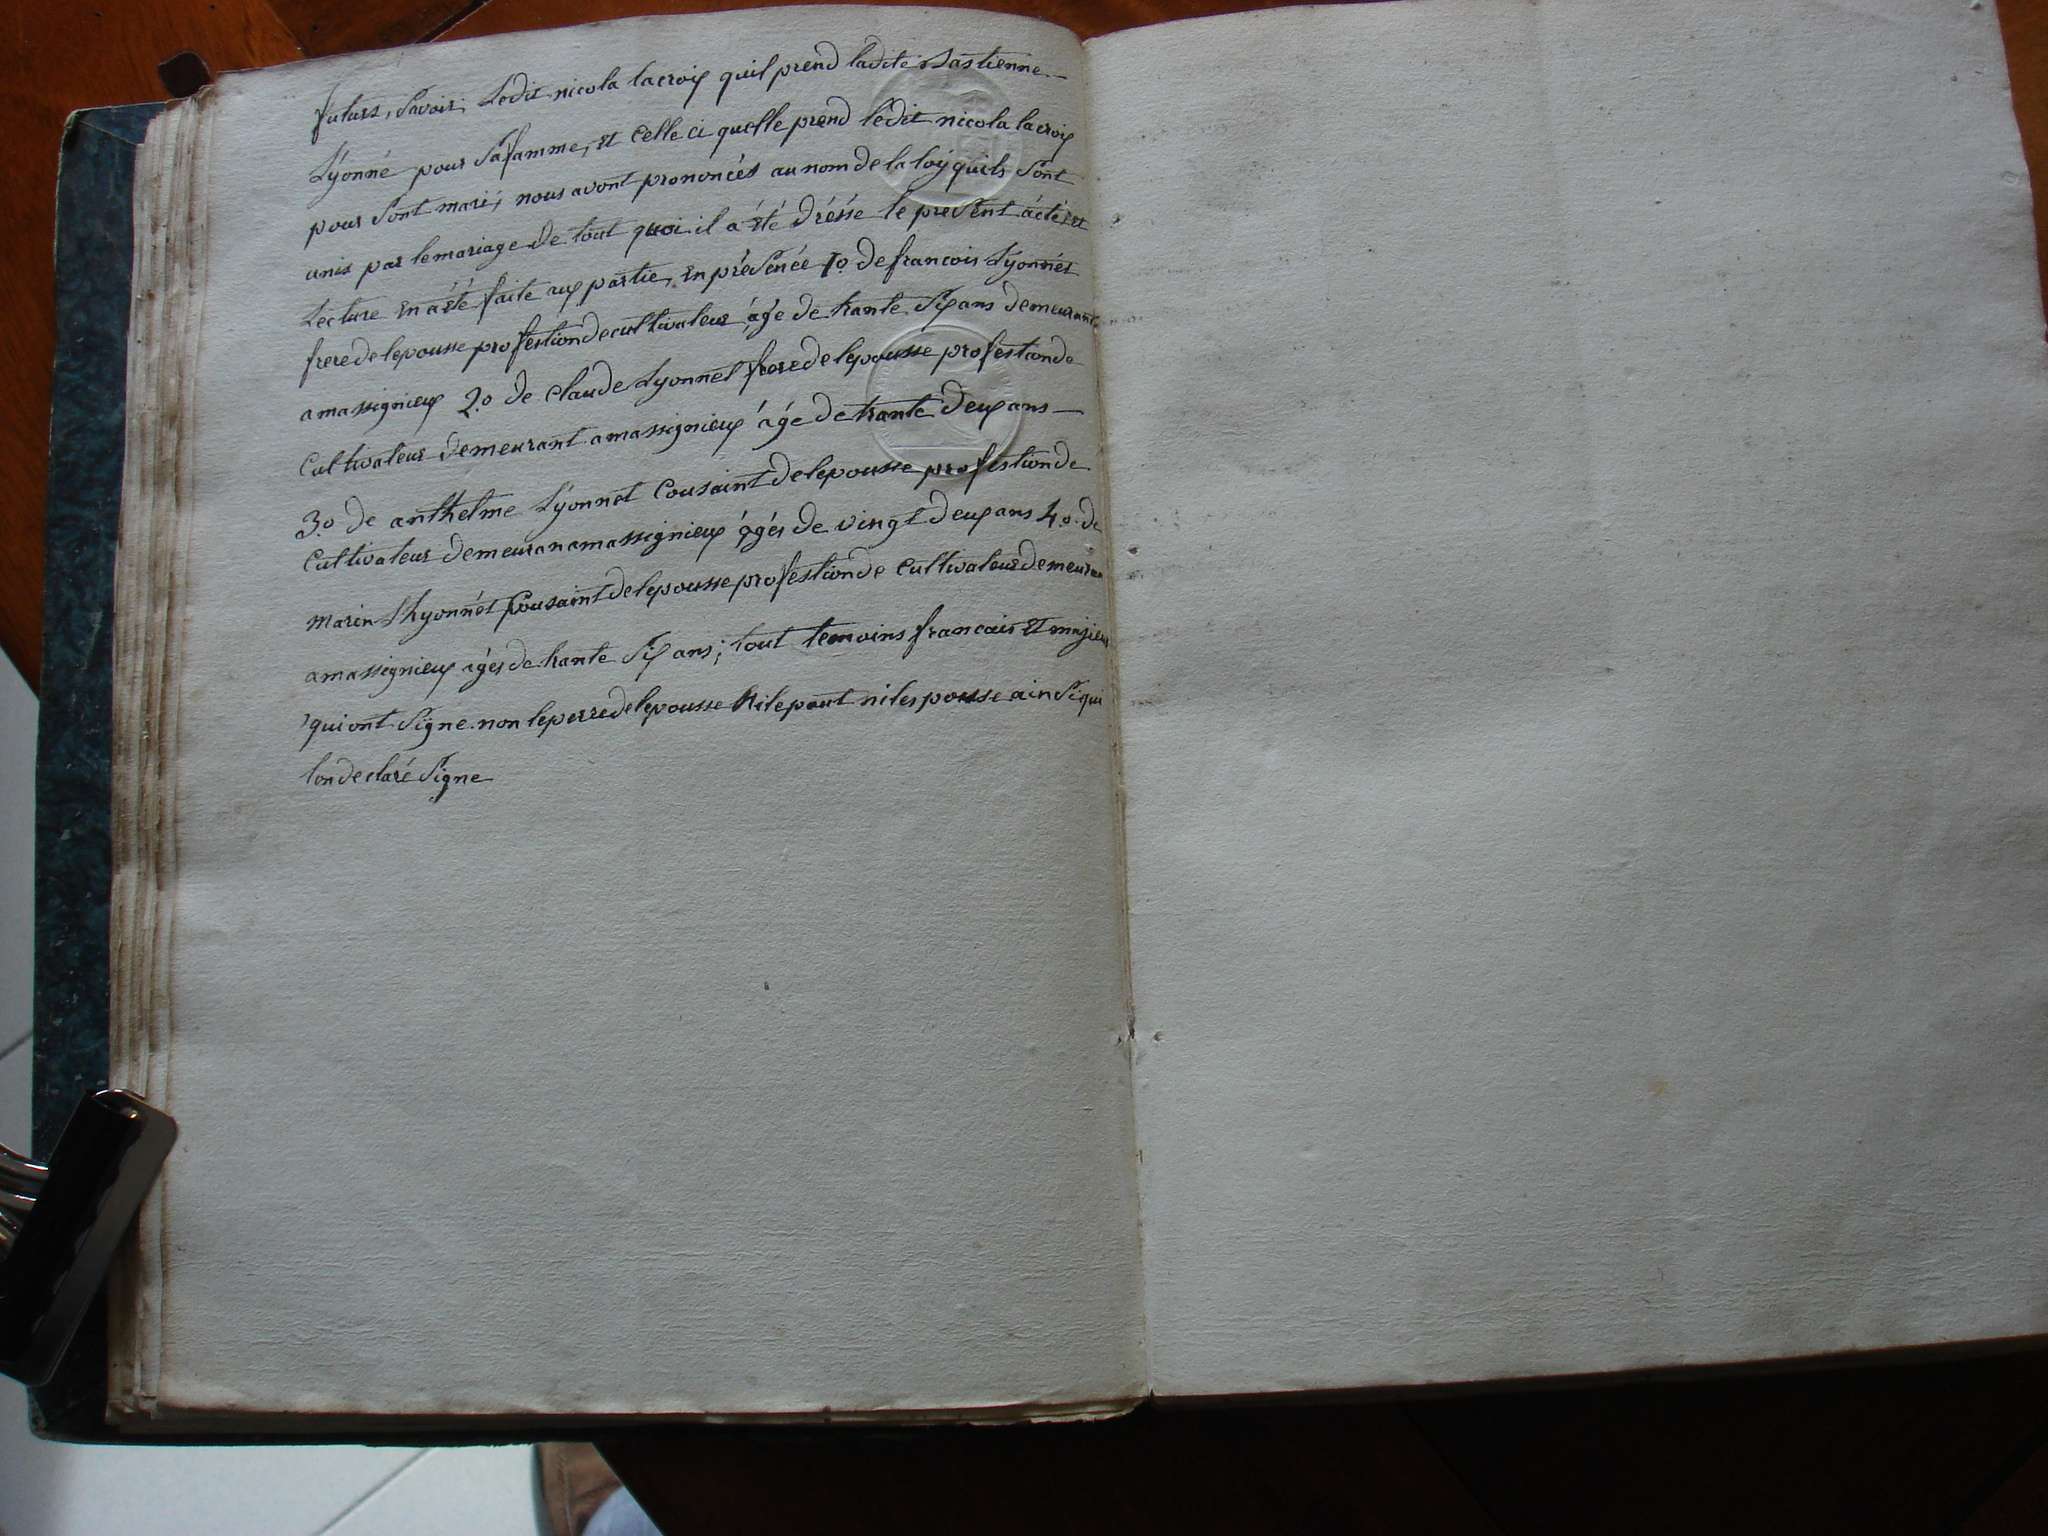 futurs, Savoir; Ledit nicola lacroix quil prend ladite Bastienne
Lyonné pour Safamme, et Celle ci quelle prend ledit nicola lacroix
pour Sont mari; nous avont prononcés au nom de la loÿ quils Sont
unis par le mariage de tout quoi il a été dréssé le present ácté et
Lecture en a été faite aux partie, en présence 1º. de francois Lyonnet
frere de lepousse profestion de cultivateur ágé de trante Six ans demeurant
a massignieux 2.º de Claude Lyonnet frere de lepousse profestion de
Cultivateur demeurant a massignieux ágé de trante deux ans
3.º de anthelme Lyonnet Cousaint de lepousse profestion de
Cultivateur demeuran a massignieux ágés de vingt deux ans 4.º de
marin Lhyonnet Cousaint de lepousse profestion de Cultivateur demeuran
a massignieux ágés de trante Six ans; tout temoins francais et majieur
qui ont Signe non le perre de lepousse ni lepout ni lespousse ain Si qui
lon declaré Signe